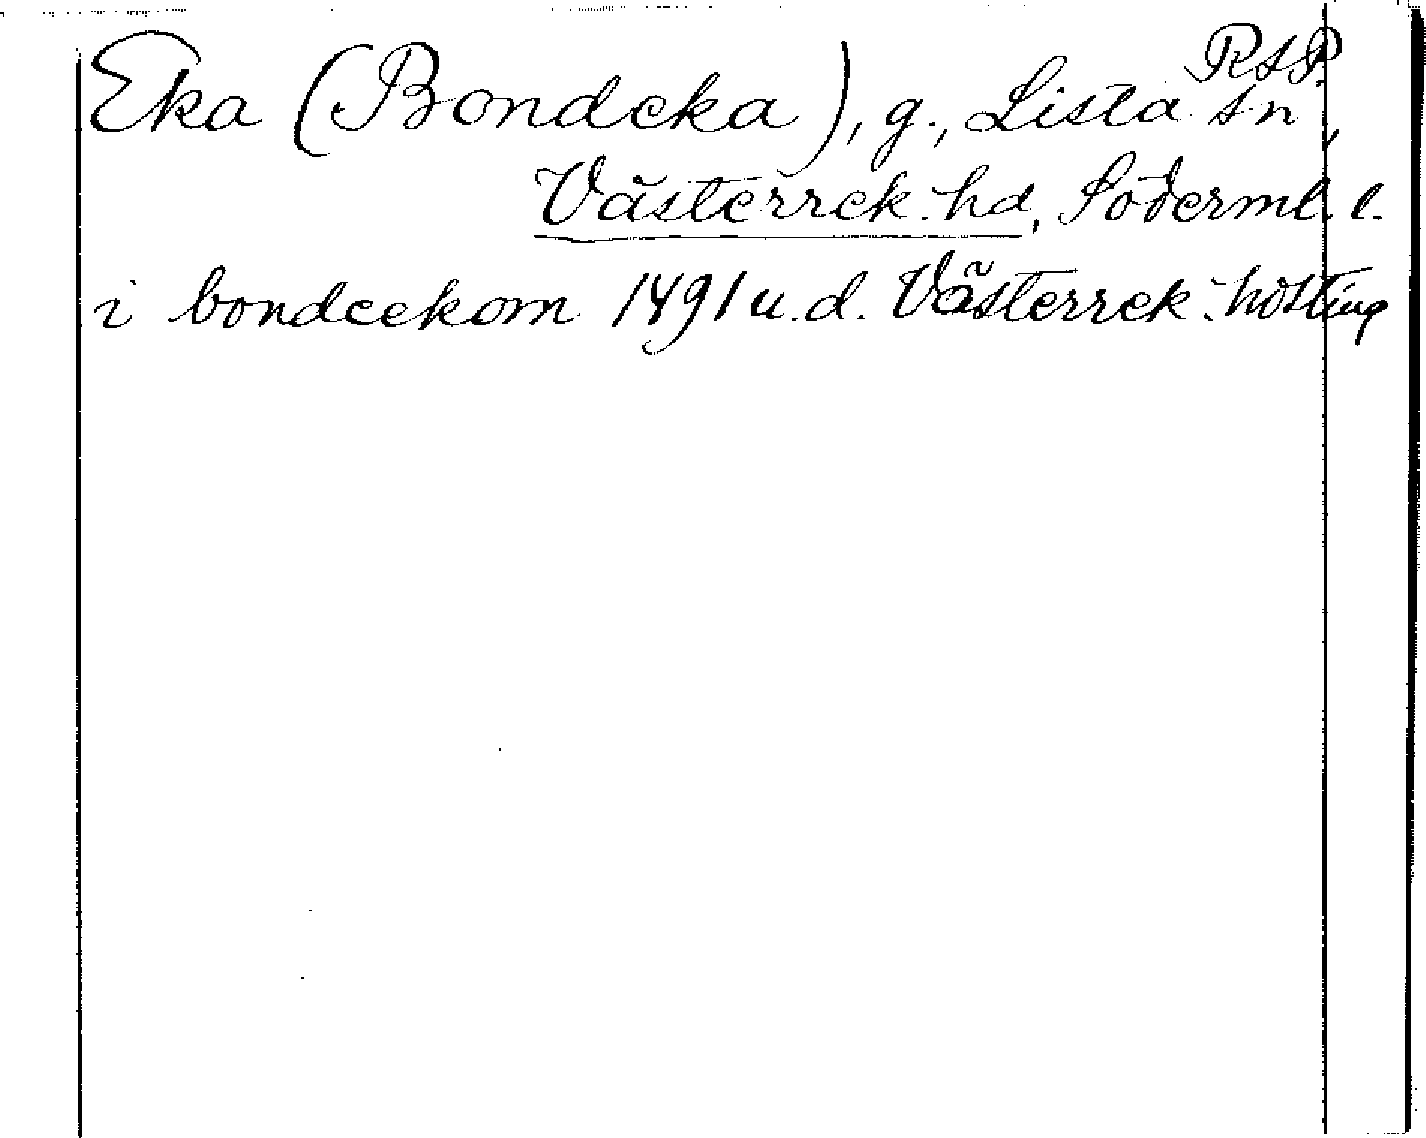 RAP
Eka (Bondeka), g., Lista sn,
Västerrek. hd, Söderml. l.
i bondeekom 1491 u. d. Västerrek. hösting